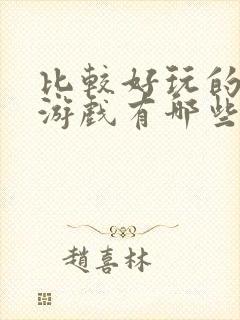 比較好玩的
游戲有哪些
趙喜林